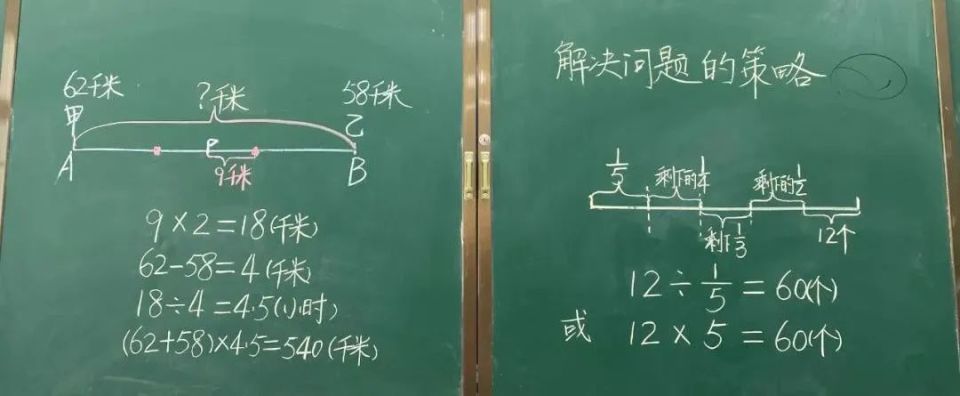 62千米
?千米
58千米
甲
乙
A
P
B
9千米
9×2=18(千米)
62-58=4(千米)
18÷4=4.5(小时)
(62+58)×4.5=540(千米)
解决问题的策略
1/5
剩下的1/4
剩下的1/2
剩下1/3
12个
12÷1/5=60(个)
或 12×5=60(个)